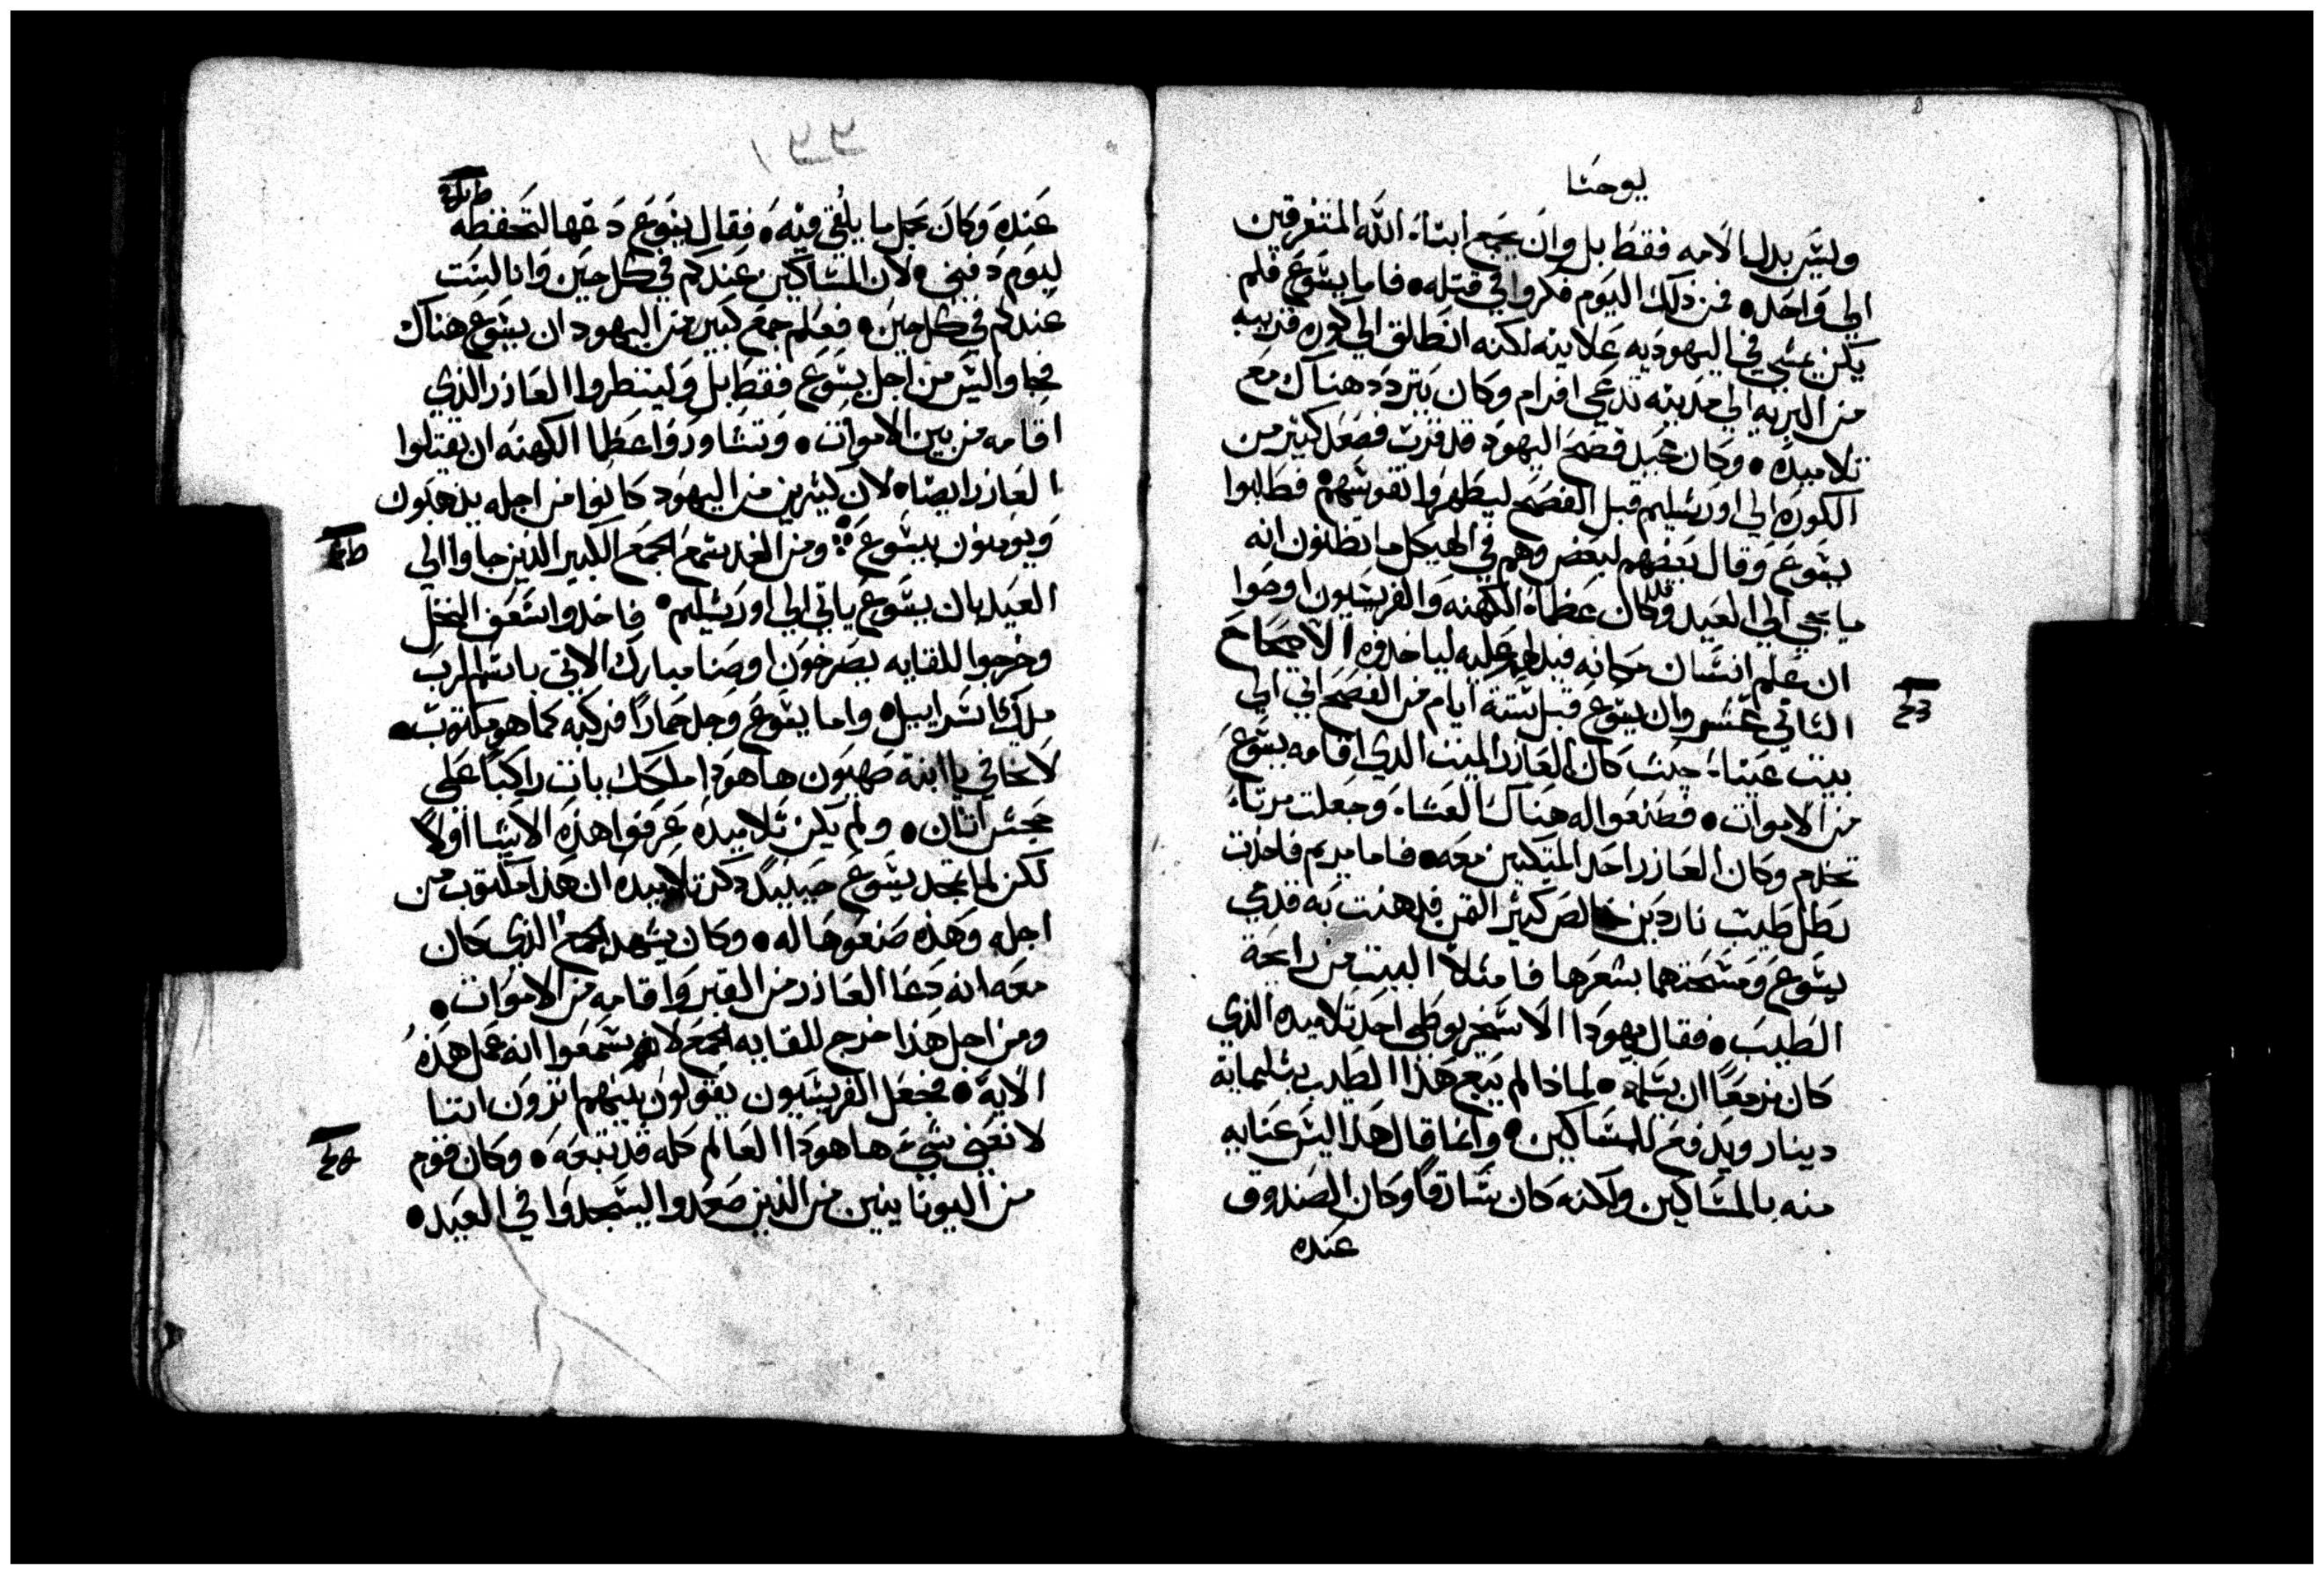 يوحنا
وليس بدل الامه فقط بل وان يجمع ابناء الله المتفرقين
الي واحد، فمن ذلك اليوم فكروا في قتله، فاما يسوع فلم
يكن يمشي في اليهوديه علانيه لكنه انطلق الي كوره قريبه
من البريه الي مدينه تدعي افرام وكان يتردد هناك مع
تلاميذه، وكان عيد فصح اليهود قد قرب فصعد كثير من
الكوره الي اورشليم قبل الفصح ليطهروا نفوسهم فطلبوا
يسوع وقال بعضهم لبعض وهم في الهيكل ما تظنون انه
ما يجي الي العيد وكان عظماء الكهنه والفريسيون اوصوا
ان علم انسان مكانه فيدلهم عليه لياخذوه الاصحاح
الثاني عشر وان يسوع قبل ستة ايام من الفصح اتي الي
بيت عنيا، حيث كان العازر الميت الذي اقامه يسوع
من الاموات، فصنعوا له هناك العشاء، وجعلت مرتا
تخدم وكان العازر احد المتكين معه، فاما مريم فاخذت
رطل طيب ناردين خالص كثير الثمن فدهنت به قدمي
يسوع ومسحتهما بشعرها فامتلا البيت من رايحة
الطيب، فقال يهودا الاسخريوطي احد تلاميذه الذي
كان مزمعا ان يسلمه، لماذا لم يبع هذا الطيب بثلثمايه
دينار ويدفع للمساكين، وانما قال هذا ليس عنايه
منه بالمساكين ولكنه كان سارقا وكان الصندوق
عنده
عنده وكان يحمل ما يلقي فيه، فقال يسوع دعها لتحفظه
ليوم دفني، لان المساكين عندكم في كل حين وانا لست
عندكم في كل حين، فعلم جمع كبير من اليهود ان يسوع هناك
فجاوا ليس من اجل يسوع فقط بل ولينظروا العازر الذي
اقامه من بين الاموات، وتشاوروا عظما الكهنه ان يقتلوا
العازر ايضا، لان كثيرين من اليهود كانوا من اجله يذهبون
ويومنون بيسوع ومن الغد سمع الجمع الكبير الذين جاوا الي
العيد بان يسوع ياتي الي اورشليم، فاخذوا سعف النخل
وخرجوا للقايه يصرخون اوصنا مبارك الاتي باسم الرب
ملك اسراييل، واما يسوع وجد حمارا فركبه كما هو مكتوب،
لا تخافي يا ابنة صهيون هاهوذا ملكك يات راكبا علي
جحش اتان، ولم يكن تلاميذه عرفوا هذه الاشيا اولا
لكن لما تمجد يسوع حينيذ ذكر تلاميذه ان هذا مكتوب من
اجله وهذه صنعوها له، وكان يشهد الجمع الذي كان
معه انه دعا العازر من القبر واقامه من الاموات،
ومن اجل هذا خرج للقايه الجمع لانهم سمعوا انه عمل هذه
الايه، فجعل الفريسيون يقولون بينهم اترون اننا
لا نغني شي هاهوذا العالم كله قد تبعه، وكان قوم
من اليونانيين من الذين صعدوا ليسجدوا في العيد،